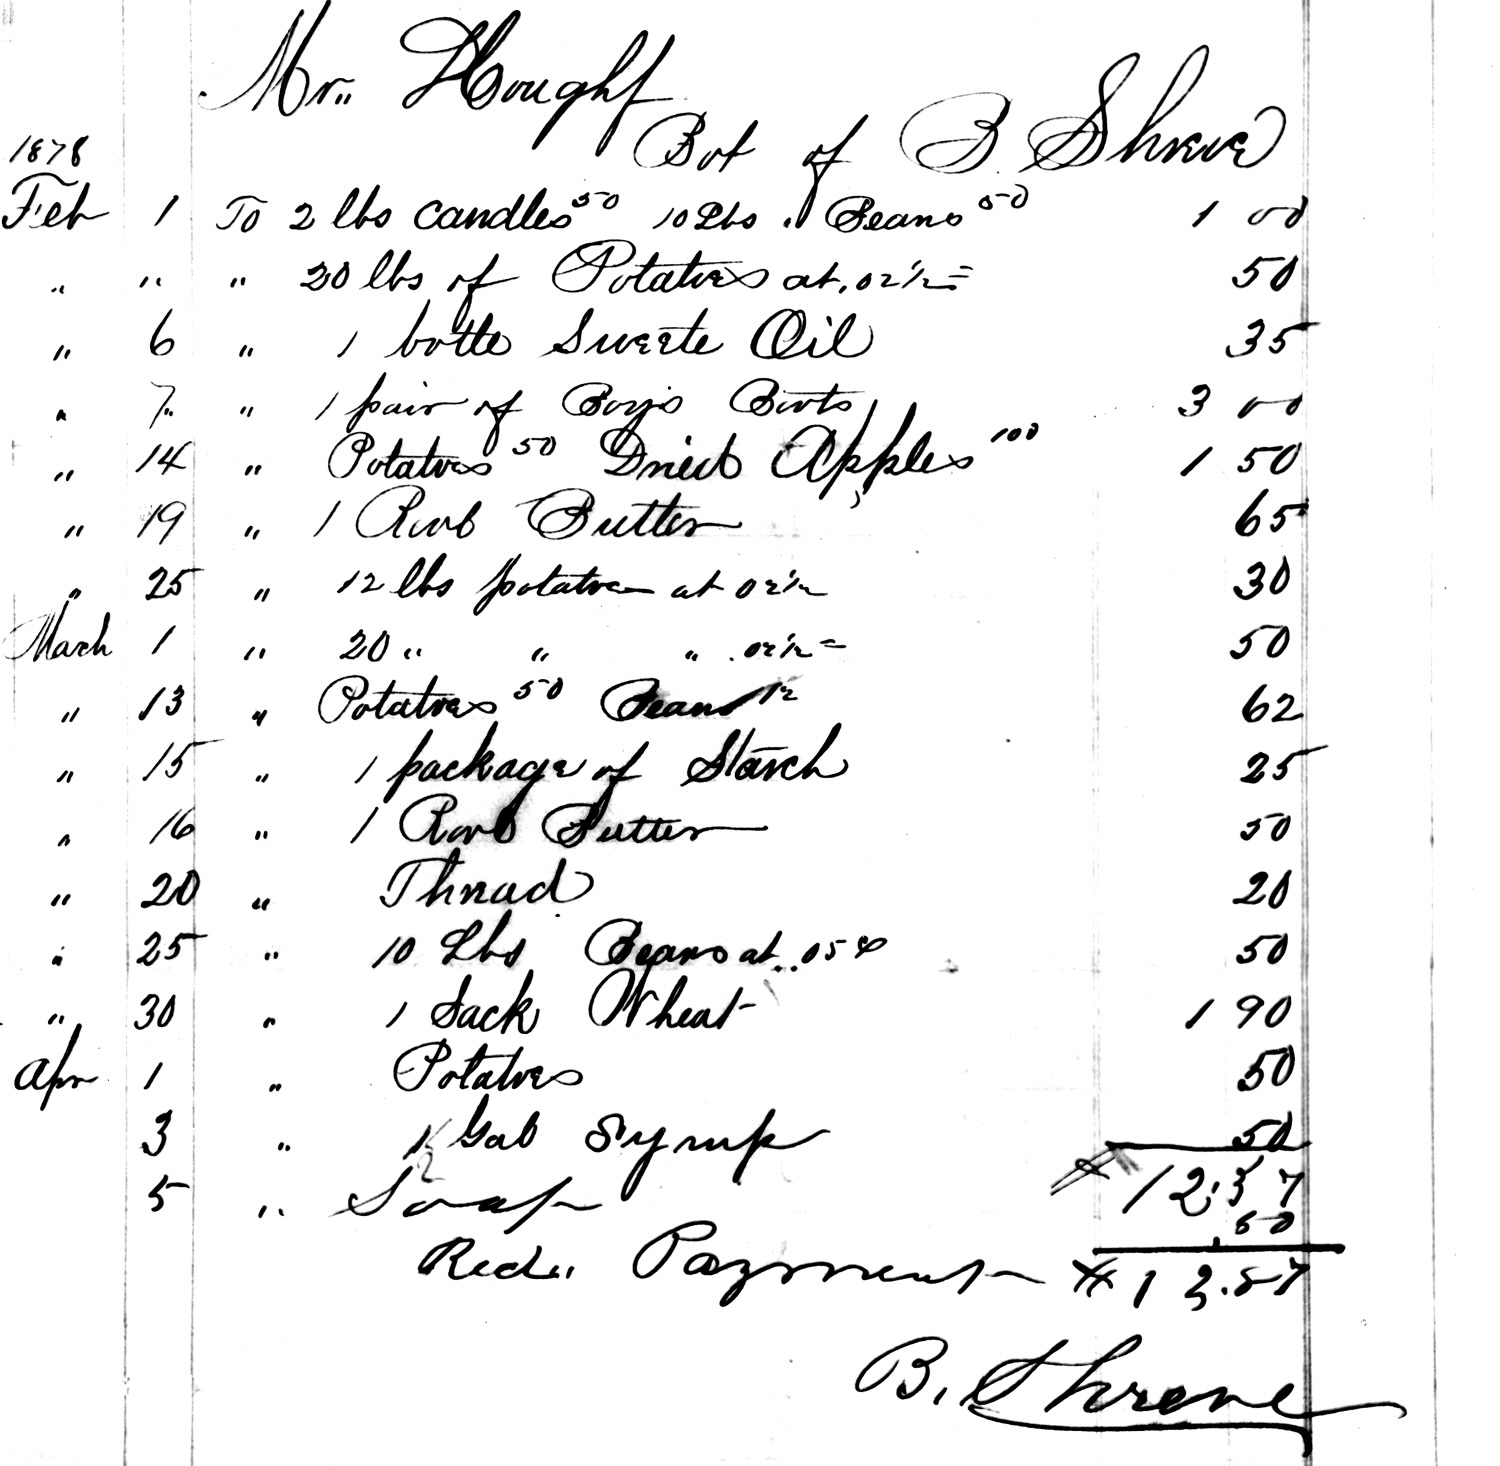 Mr. Hought
Bot of B. Shreve
1878
Feb 1 To 2 lbs candles 50 10 Lbs. Beans 50 1 00
" " " 20 lbs of Potatoes at .02½ = 50
" 6 " 1 bottle Sweete Oil 35
" 7 " 1 pair of Boys Boots 3 00
" 14 " Potatoes 50 Dried Apples 100 1 50
" 19 " 1 Roll Butter 65
" 25 " 12 lbs potatoes at 02½ 30
March 1 " 20 " " " .02½ = 50
" 13 " Potatoes 50 Beans 12 62
" 15 " 1 package of Starch 25
" 16 " 1 Roll Butter 50
" 20 " Thread 20
" 25 " 10 Lbs Beans at .05 ¢ 50
" 30 " 1 Sack Wheat 1 90
Apr 1 " Potatoes 50
3 " ½ Gal Syrup 50
# 12.37
5 " Soap .50
Recd. Payment # 12.87
B. Shreve